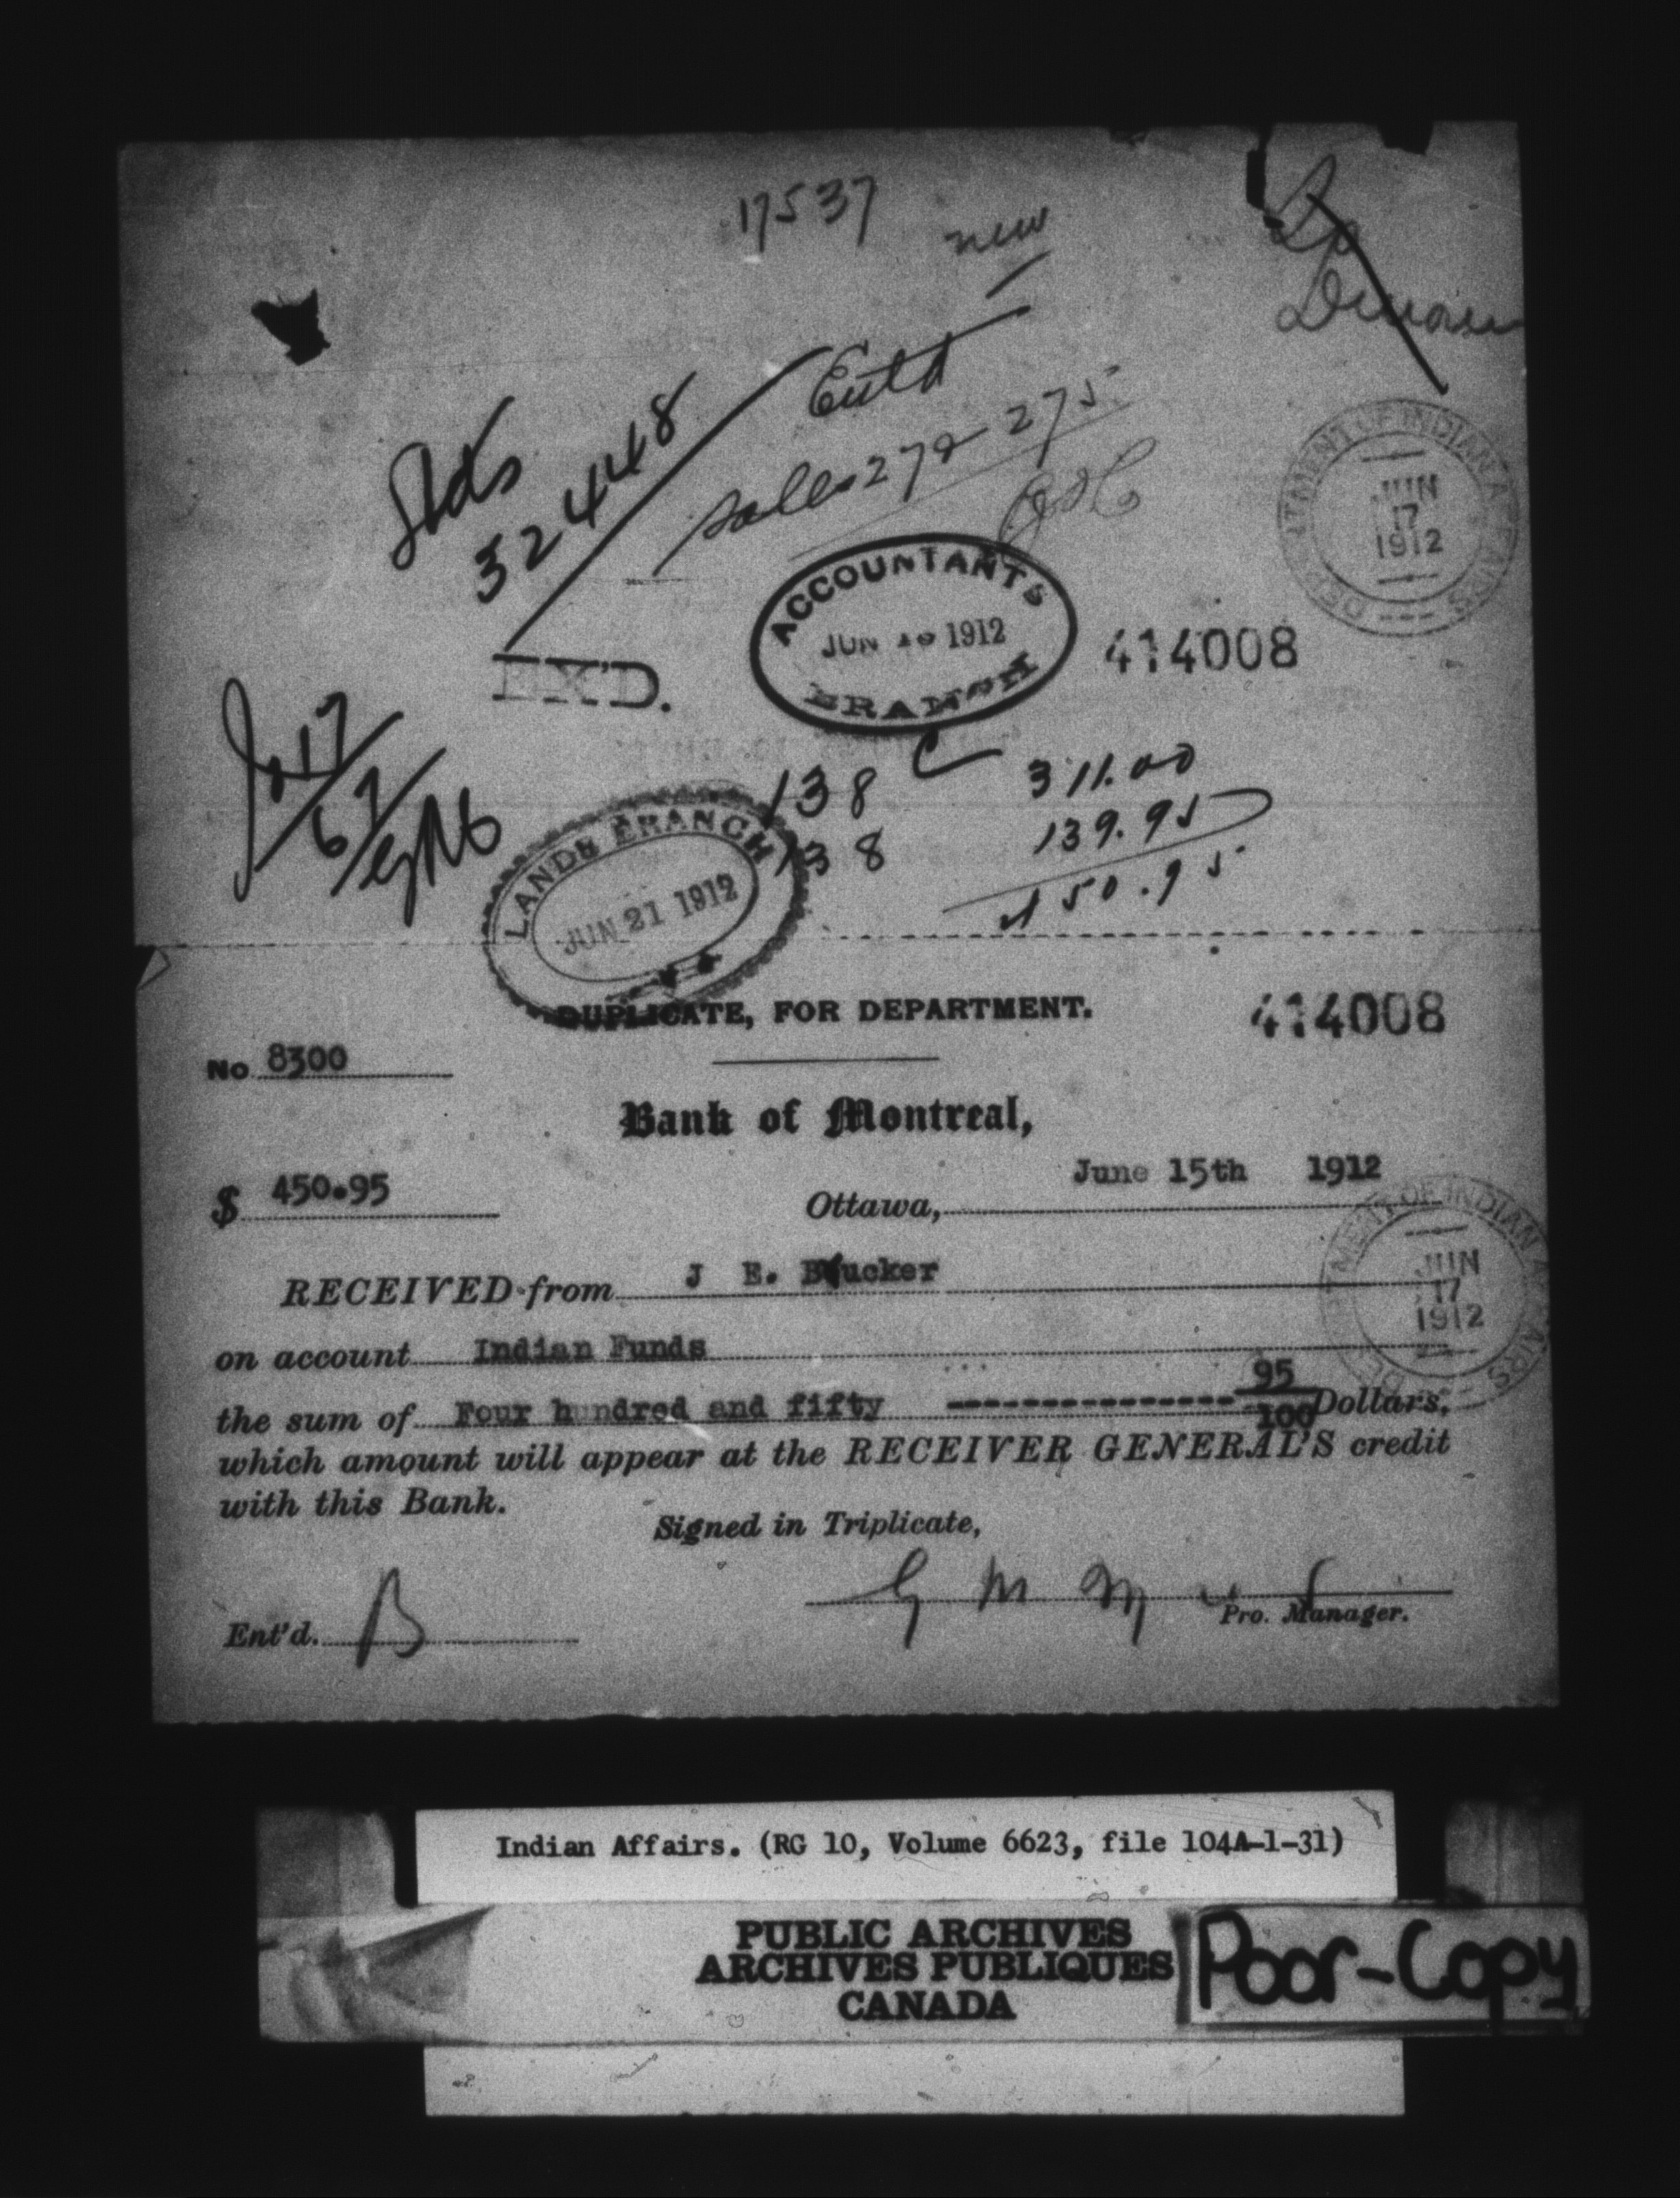 17537
new
Ent'd
324448
Sales 272-275
DEPARTMENT OF INDIAN AFFAIRS
JUN
17
1912
ACCOUNTANT'S
JUN 19 1912
BRANCH
414008
EX'D.
138 311.00
138 139.95
450.95
LANDS BRANCH
JUN 21 1912
DUPLICATE, FOR DEPARTMENT.
414008
No 8300
Bank of Montreal,
$ 450.95
Ottawa, June 15th 1912
DEPARTMENT OF INDIAN AFFAIRS
JUN
17
1912
RECEIVED from J E. Bucker
on account Indian Funds
the sum of Four hundred and fifty ---------------- 95/100 Dollars,
which amount will appear at the RECEIVER GENERAL'S credit
with this Bank.
Signed in Triplicate,
Pro. Manager.
Ent'd. B
Indian Affairs. (RG 10, Volume 6623, file 104A-1-31)
PUBLIC ARCHIVES
ARCHIVES PUBLIQUES
CANADA
Poor-Copy